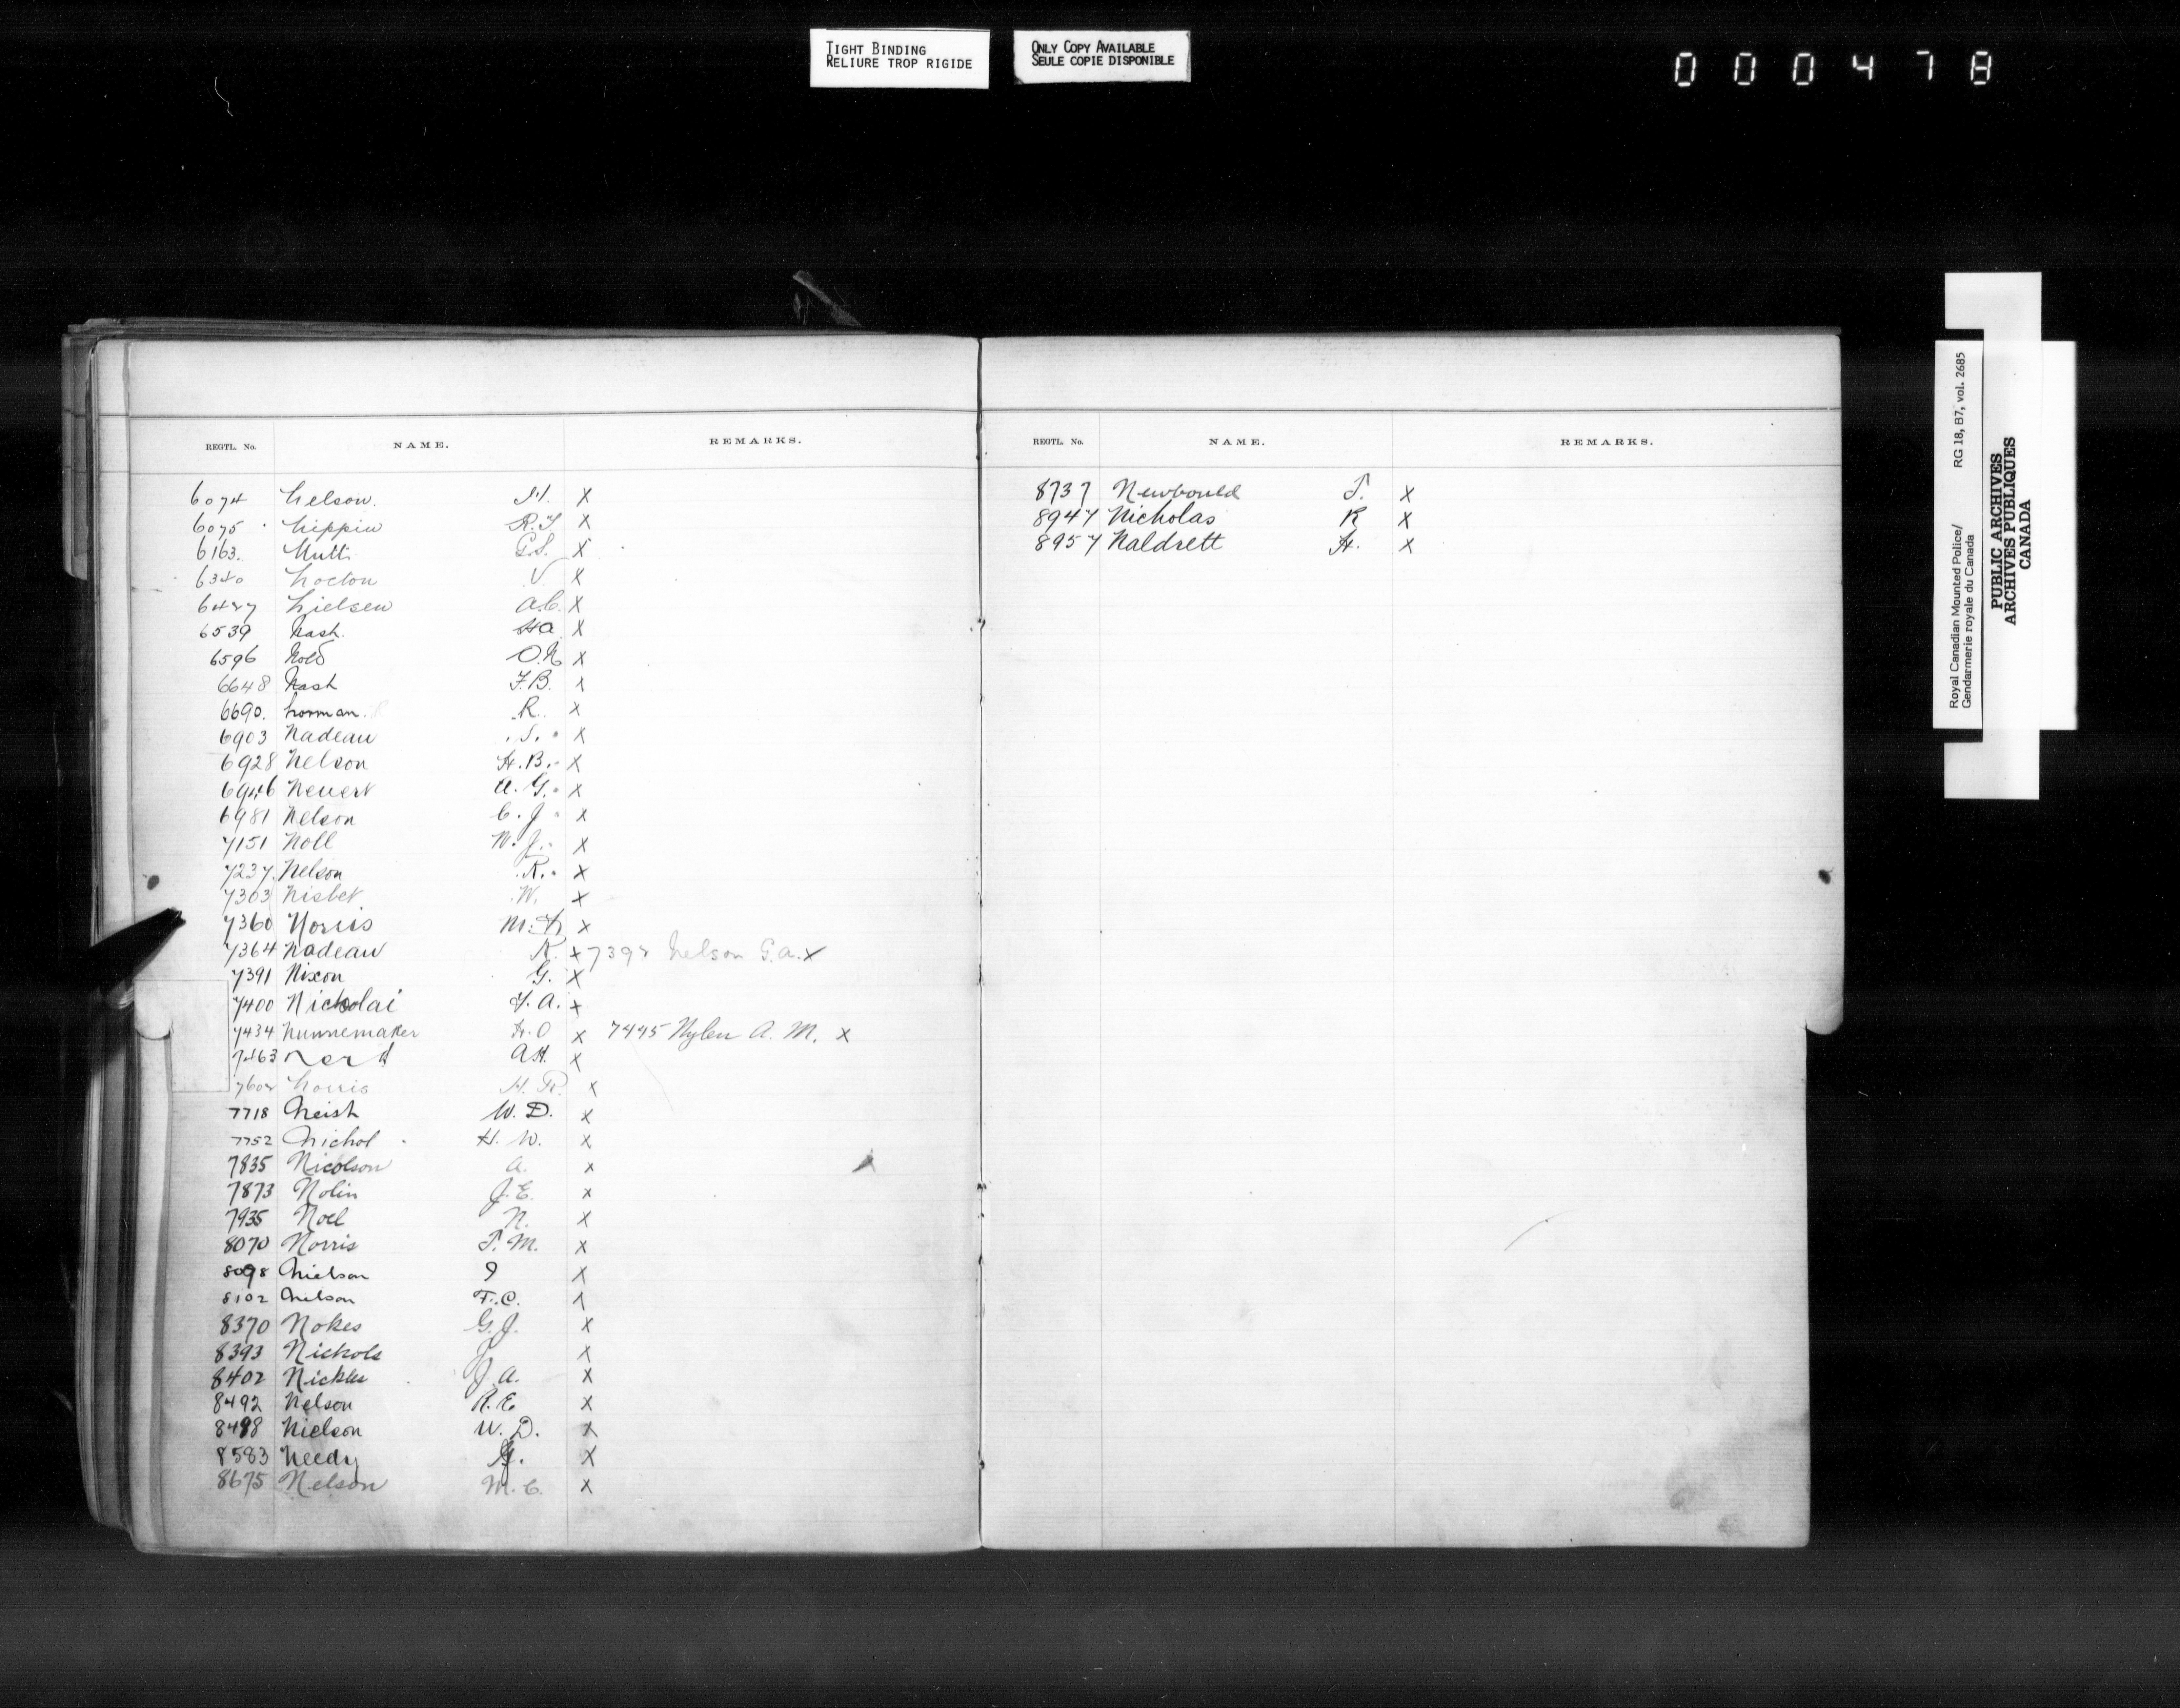 TIGHT BINDING
RELIURE TROP RIGIDE
ONLY COPY AVAILABLE
SEULE COPIE DISPONIBLE
000478
REGTL. No. NAME. REMARKS.
6074 Nelson. H. X
6075 Nippin R.T. X
6163. Nutt G.S. X
6340 Nocton V. X
6427 Nielsen A.C. X
6539 Nash. H.A. X
6596 O.N. X
6648 Nash F.B. X
6690. Norman. R. X
6903 Nadeau S. X
6928 Nelson H.B. X
6946 A.G. X
6981 Nelson C.J. X
7151 Noll W.J. X
7237. Nelson R. X
7303 Nisbet W. X
7360 Norris M. X
7364 Nadeau R. X 7392 Nelson G.A. X
7391 Nixon G. X
7400 Nickolai F.A. X
7434 Nunnemaker H.O X 7445 Nylen A. M. X
7463 A.H. X
Norris H. R. X
7718 Neish W. D. X
7752 Nichol H. W. X
7835 Nicolson A. X
7873 Nolin J.E. X
7935 Noel N. X
8070 Norris T. M. X
8098 Nielson X
8102 Nelson F.C. X
8370 Nokes G.J. X
8393 Nichols J X
8402 Nickle J.A. X
8492 Nelson R.E X
8498 Nielson W. D. X
8583 Needy X
8675 Nelson M.C. X
REGTL. No. NAME. REMARKS.
8737 Newbould T. X
8947 Nicholas R X
8957 Naldrett H. X
Royal Canadian Mounted Police/ RG 18, B7, vol. 2685
Gendarmerie royale du Canada
PUBLIC ARCHIVES
ARCHIVES PUBLIQUES
CANADA